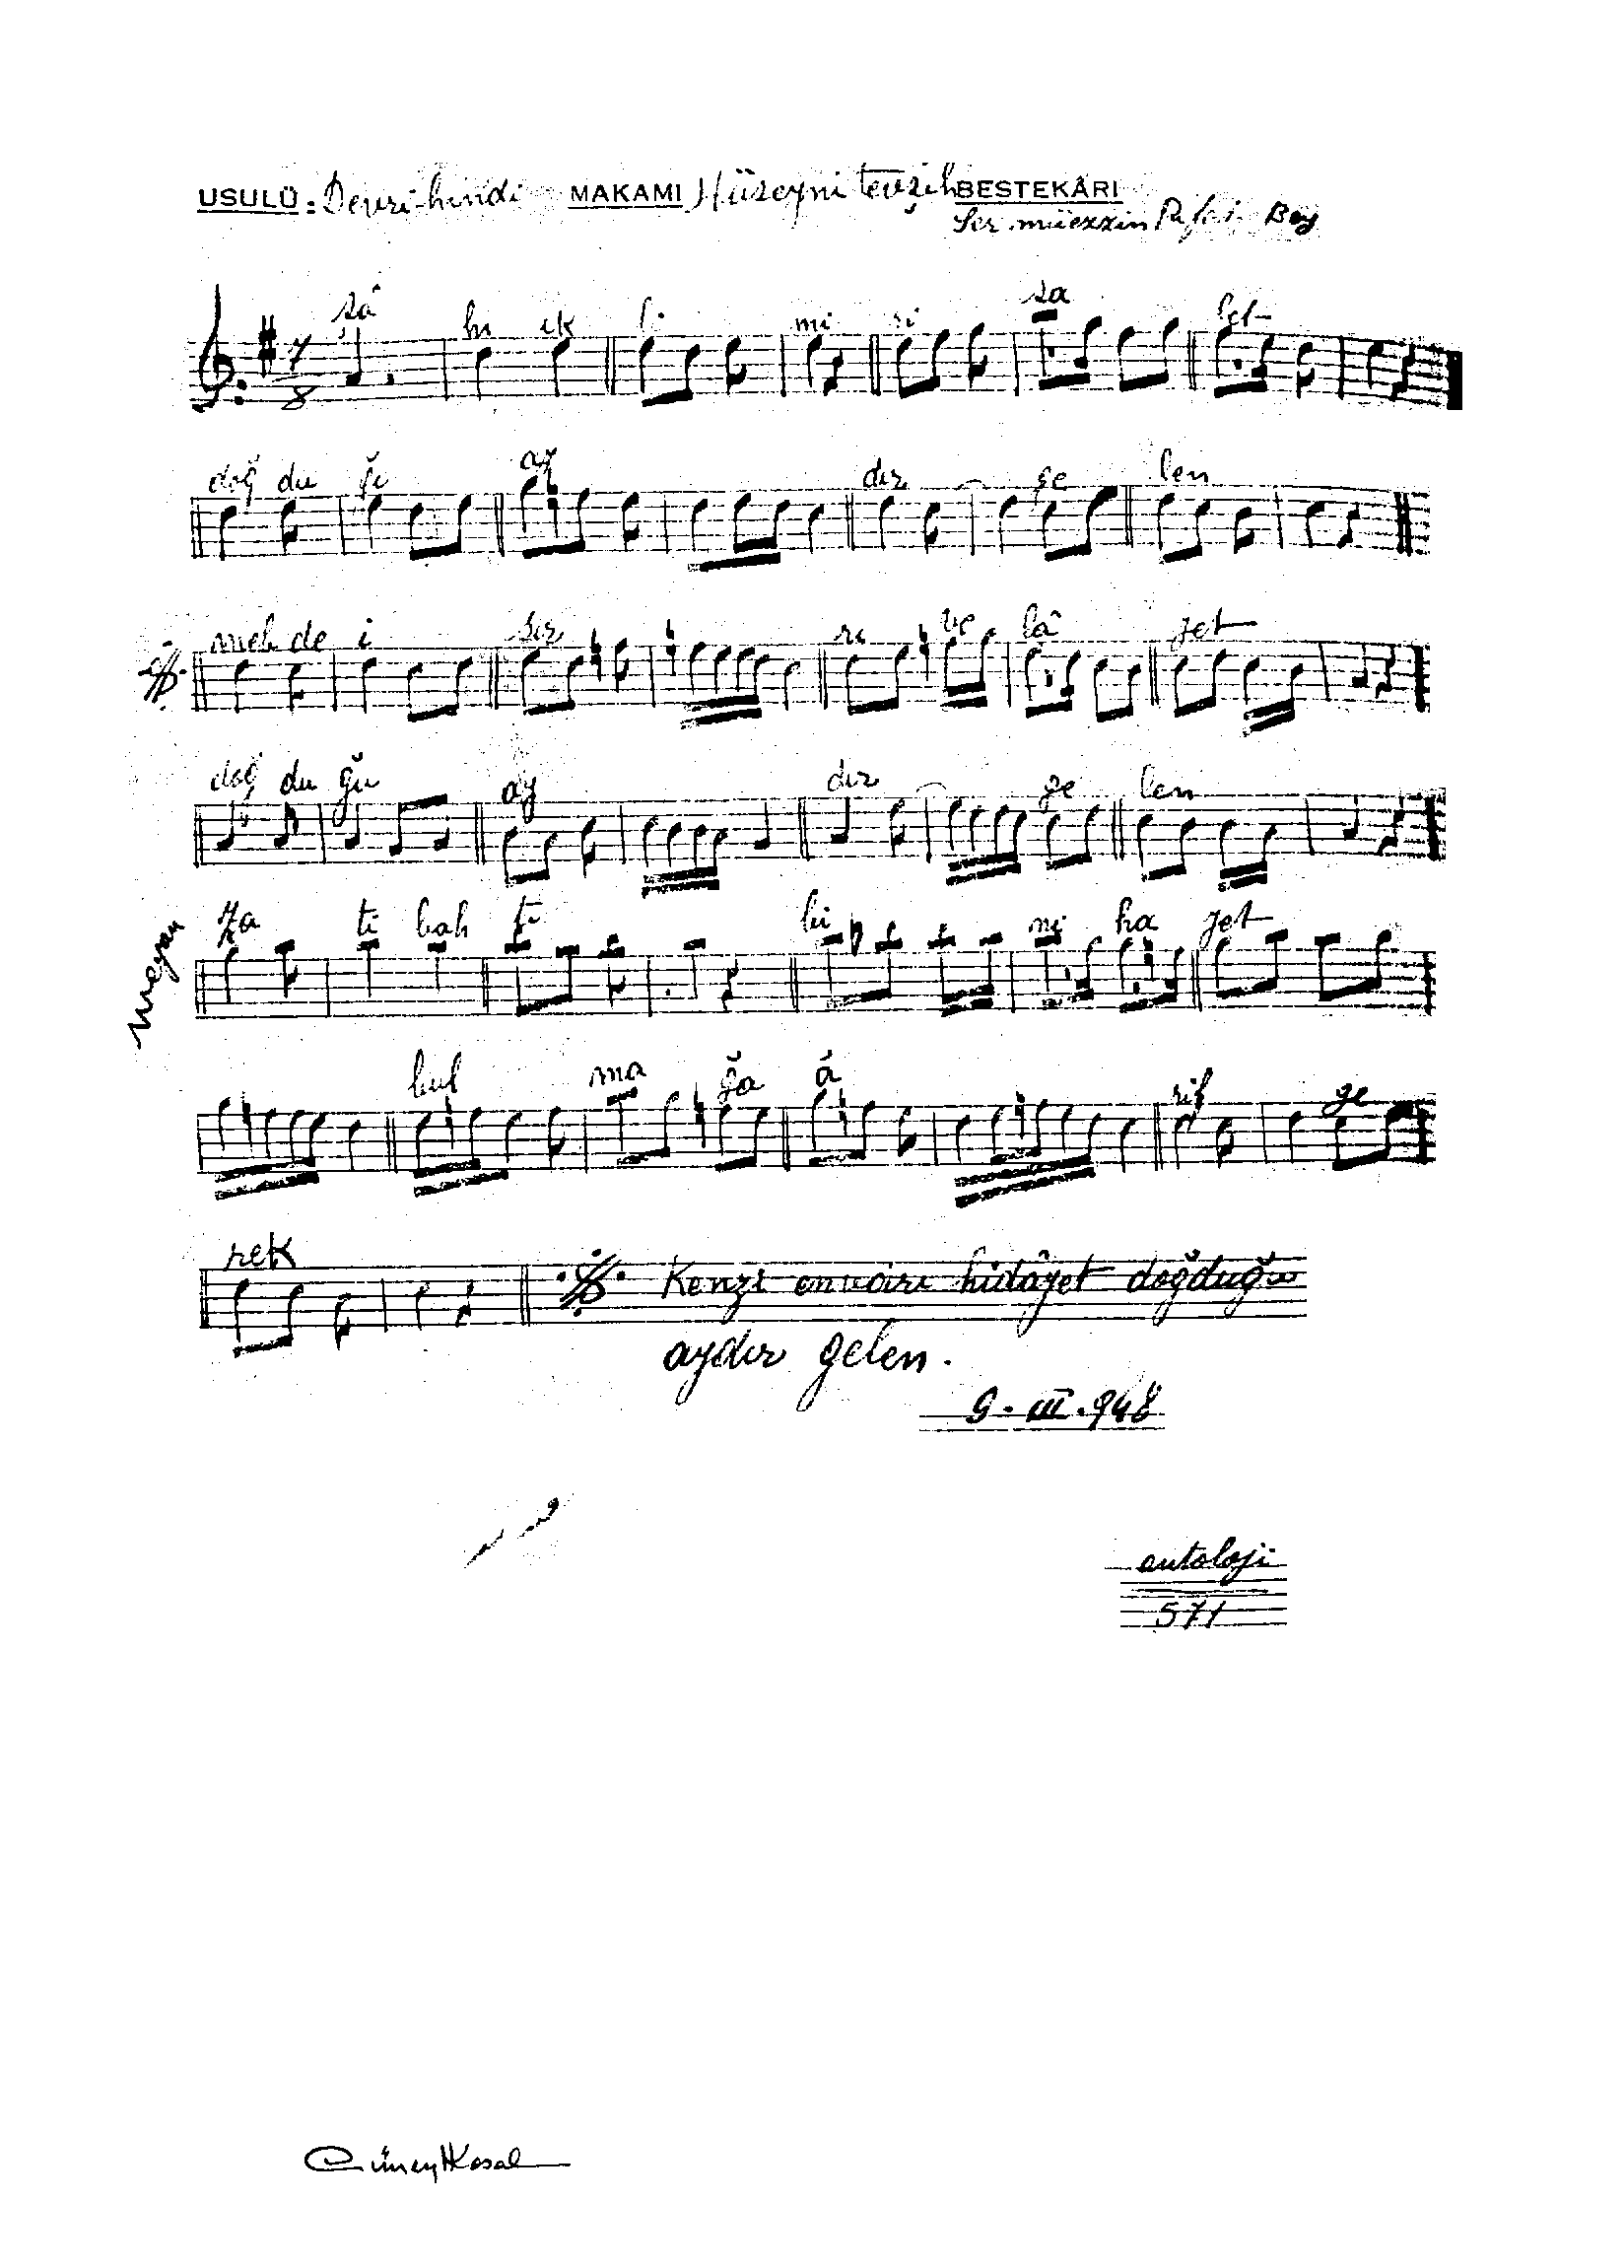 USULÜ : Devri-hindi MAKAMI Hüseyni tevşih BESTEKÂRI
Ser müezzin Rifat Bey
7
8
sâ hi ik li mi ri sa let
doğ du ğu ay dır ge len
meh de i sır rı ve lâ yet
doğ du ğu ay dır ge len
meyan
za ti bah ti bi ni ha yet
bul ma ğa â rif ge
rek Kenzi envârı hidâyet doğduğu
aydır gelen.
9. III. 948
antoloji
571
Cüneyt Kosal